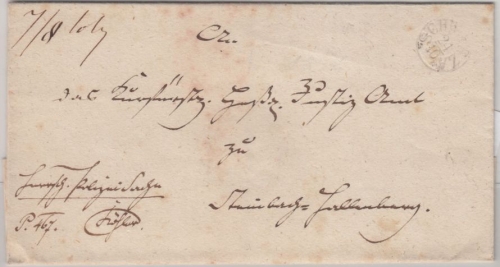 7/8 loth
An
das Kurfürstl. Hess. Justiz Amt
zu
Steinbach-Hallenberg.
Herrsch. Polizei Sache
P. 467.